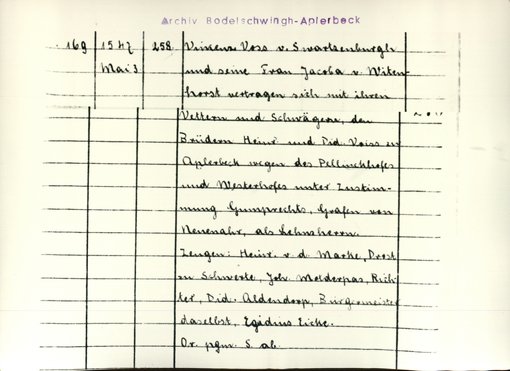 Archiv Bodelschwingh-Aplerbeck
169 1547 258. Vinzenz Voss v. Swartsenburgh
Mai 3 und seine Frau Jacoba v. Witen-
horst vertragen sich mit ihren
Vettern und Schwägern, den
Brüdern Heinr. und Did. Voiss zu
Aplerbeck wegen des Pellinckhofes
und Westerhofes unter Zustim-
mung Gumprechts, Grafen von
Neuenahr, als Lehnsherrn.
Zeugen: Heinr. v. d. Marke, Drost
zu Schwerte, Joh. Molderpas, Rich-
ter, Did. Aldendorp, Bürgermeister
daselbst, Egidius Eicke.
Or. pgm. S. ab.